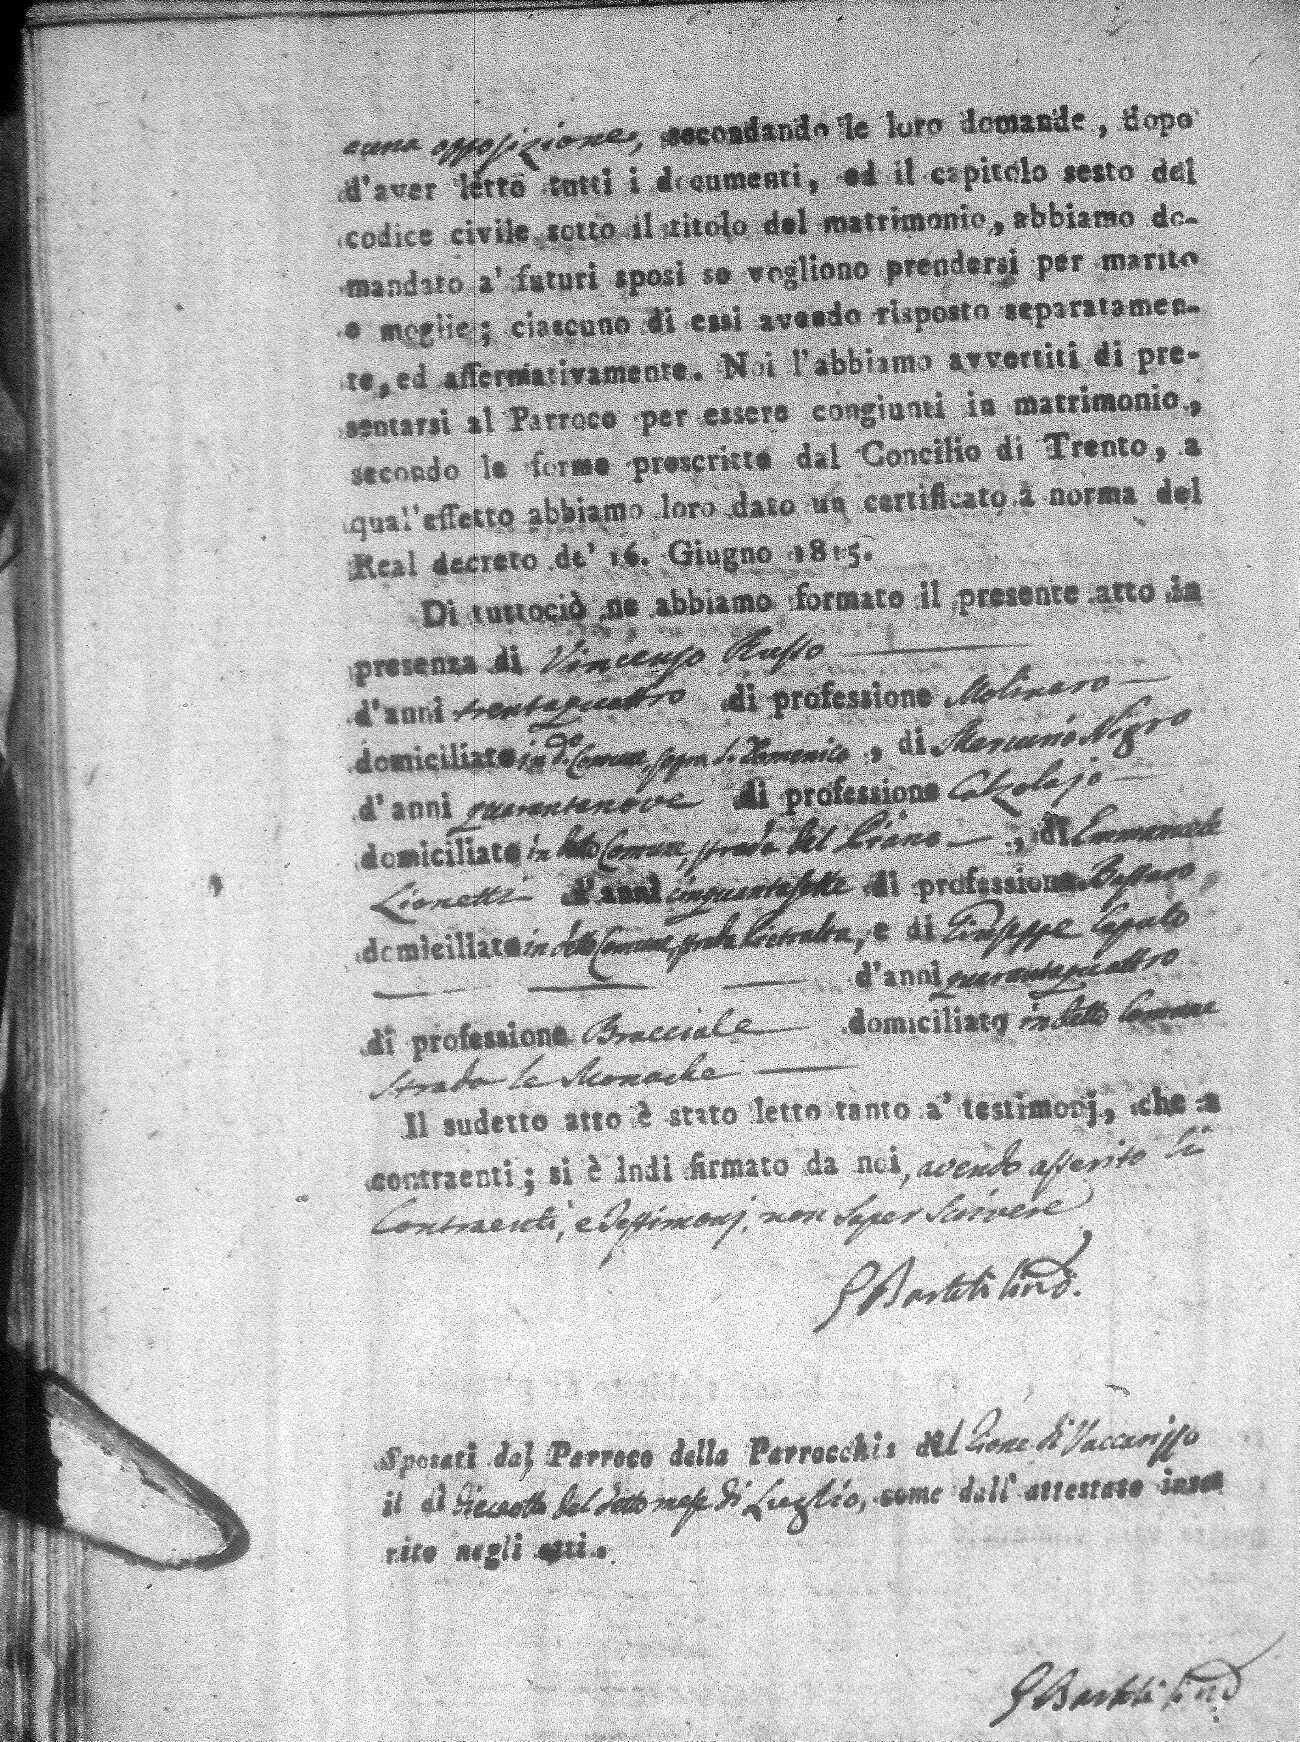 cuna opposizione, secondando le loro domande, dopo
d'aver letto tutti i documenti, ed il capitolo sesto del
codice civile sotto il titolo del matrimonio, abbiamo do-
mandato a' futuri sposi se vogliono prendersi per marito
e moglie; ciascuno di essi avendo risposto separatamen-
te, ed affermativamente. Noi l'abbiamo avvertiti di pre-
sentarsi al Parroco per essere congiunti in matrimonio,
secondo le forme prescritte dal Concilio di Trento, a
qual'effetto abbiamo loro dato un certificato a norma del
Real decreto de' 16. Giugno 1815.
Di tuttociò ne abbiamo formato il presente atto in
presenza di Vincenzo Russo
d'anni trentaquattro di professione Molinaro
domiciliato in do. Comune, sopra S. Domenico, di Mercurio Nigro
d'anni quarantanove di professione Calzolajo
domiciliato in detto Comune, strada del Piano, di Emmanuele
Lionetti d'anni cinquantasette di professione
domiciliato in detto Comune, strada e di Giuseppe
d'anni quarantaquattro
di professione Bracciale domiciliato in detto Comune
strada le Monache
Il sudetto atto è stato letto tanto a' testimonj, che a
contraenti; si è indi firmato da noi, avendo asserito li
Contraenti, e Testimonj, non saper scrivere
Sposati dal Parroco della Parrocchia del Pione di Vaccarizzo
il dì dieciotto del detto mese di Luglio, come dall'attestato inse-
rito negli atti.